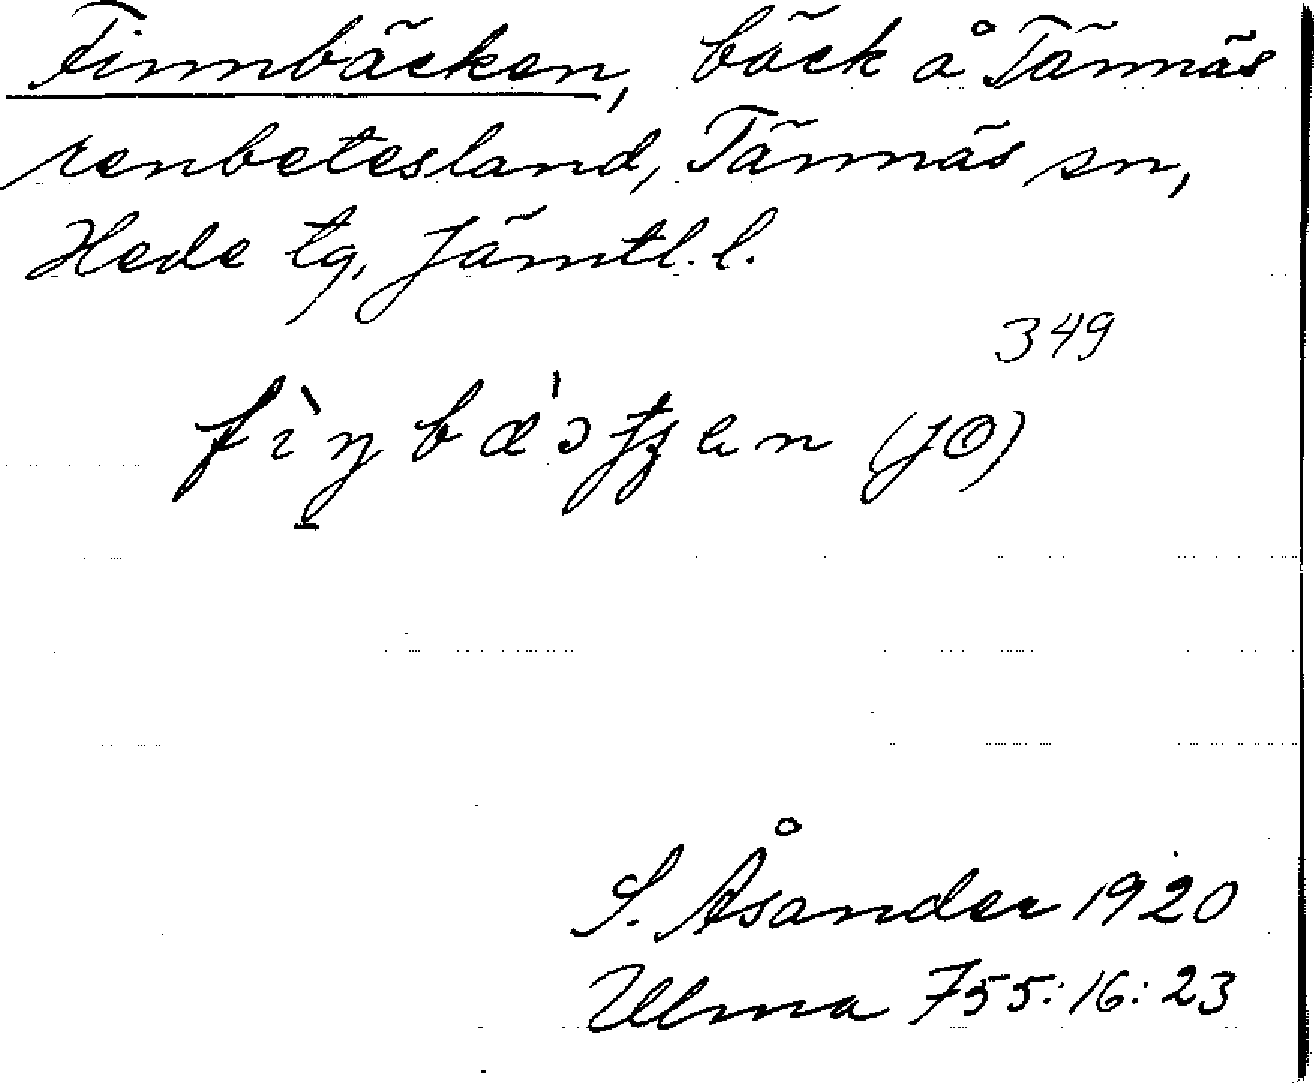 Finnbäcken, bäck å Tännäs
renbetesland, Tännäs sn,
Hede tg, Jämtl. l.
349
S. Åsander 1920
Ulma 755:16:23